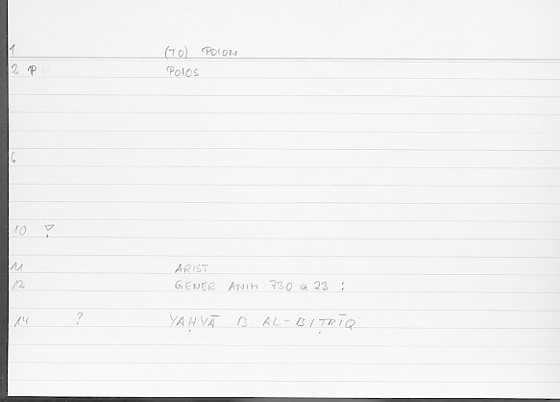 1 (TO) POION
2 P POIOS
6
10
11 ARIST
12 GENER ANIM 730 a 23 :
14 ? YAḤYĀ B AL-BIṬRĪQ